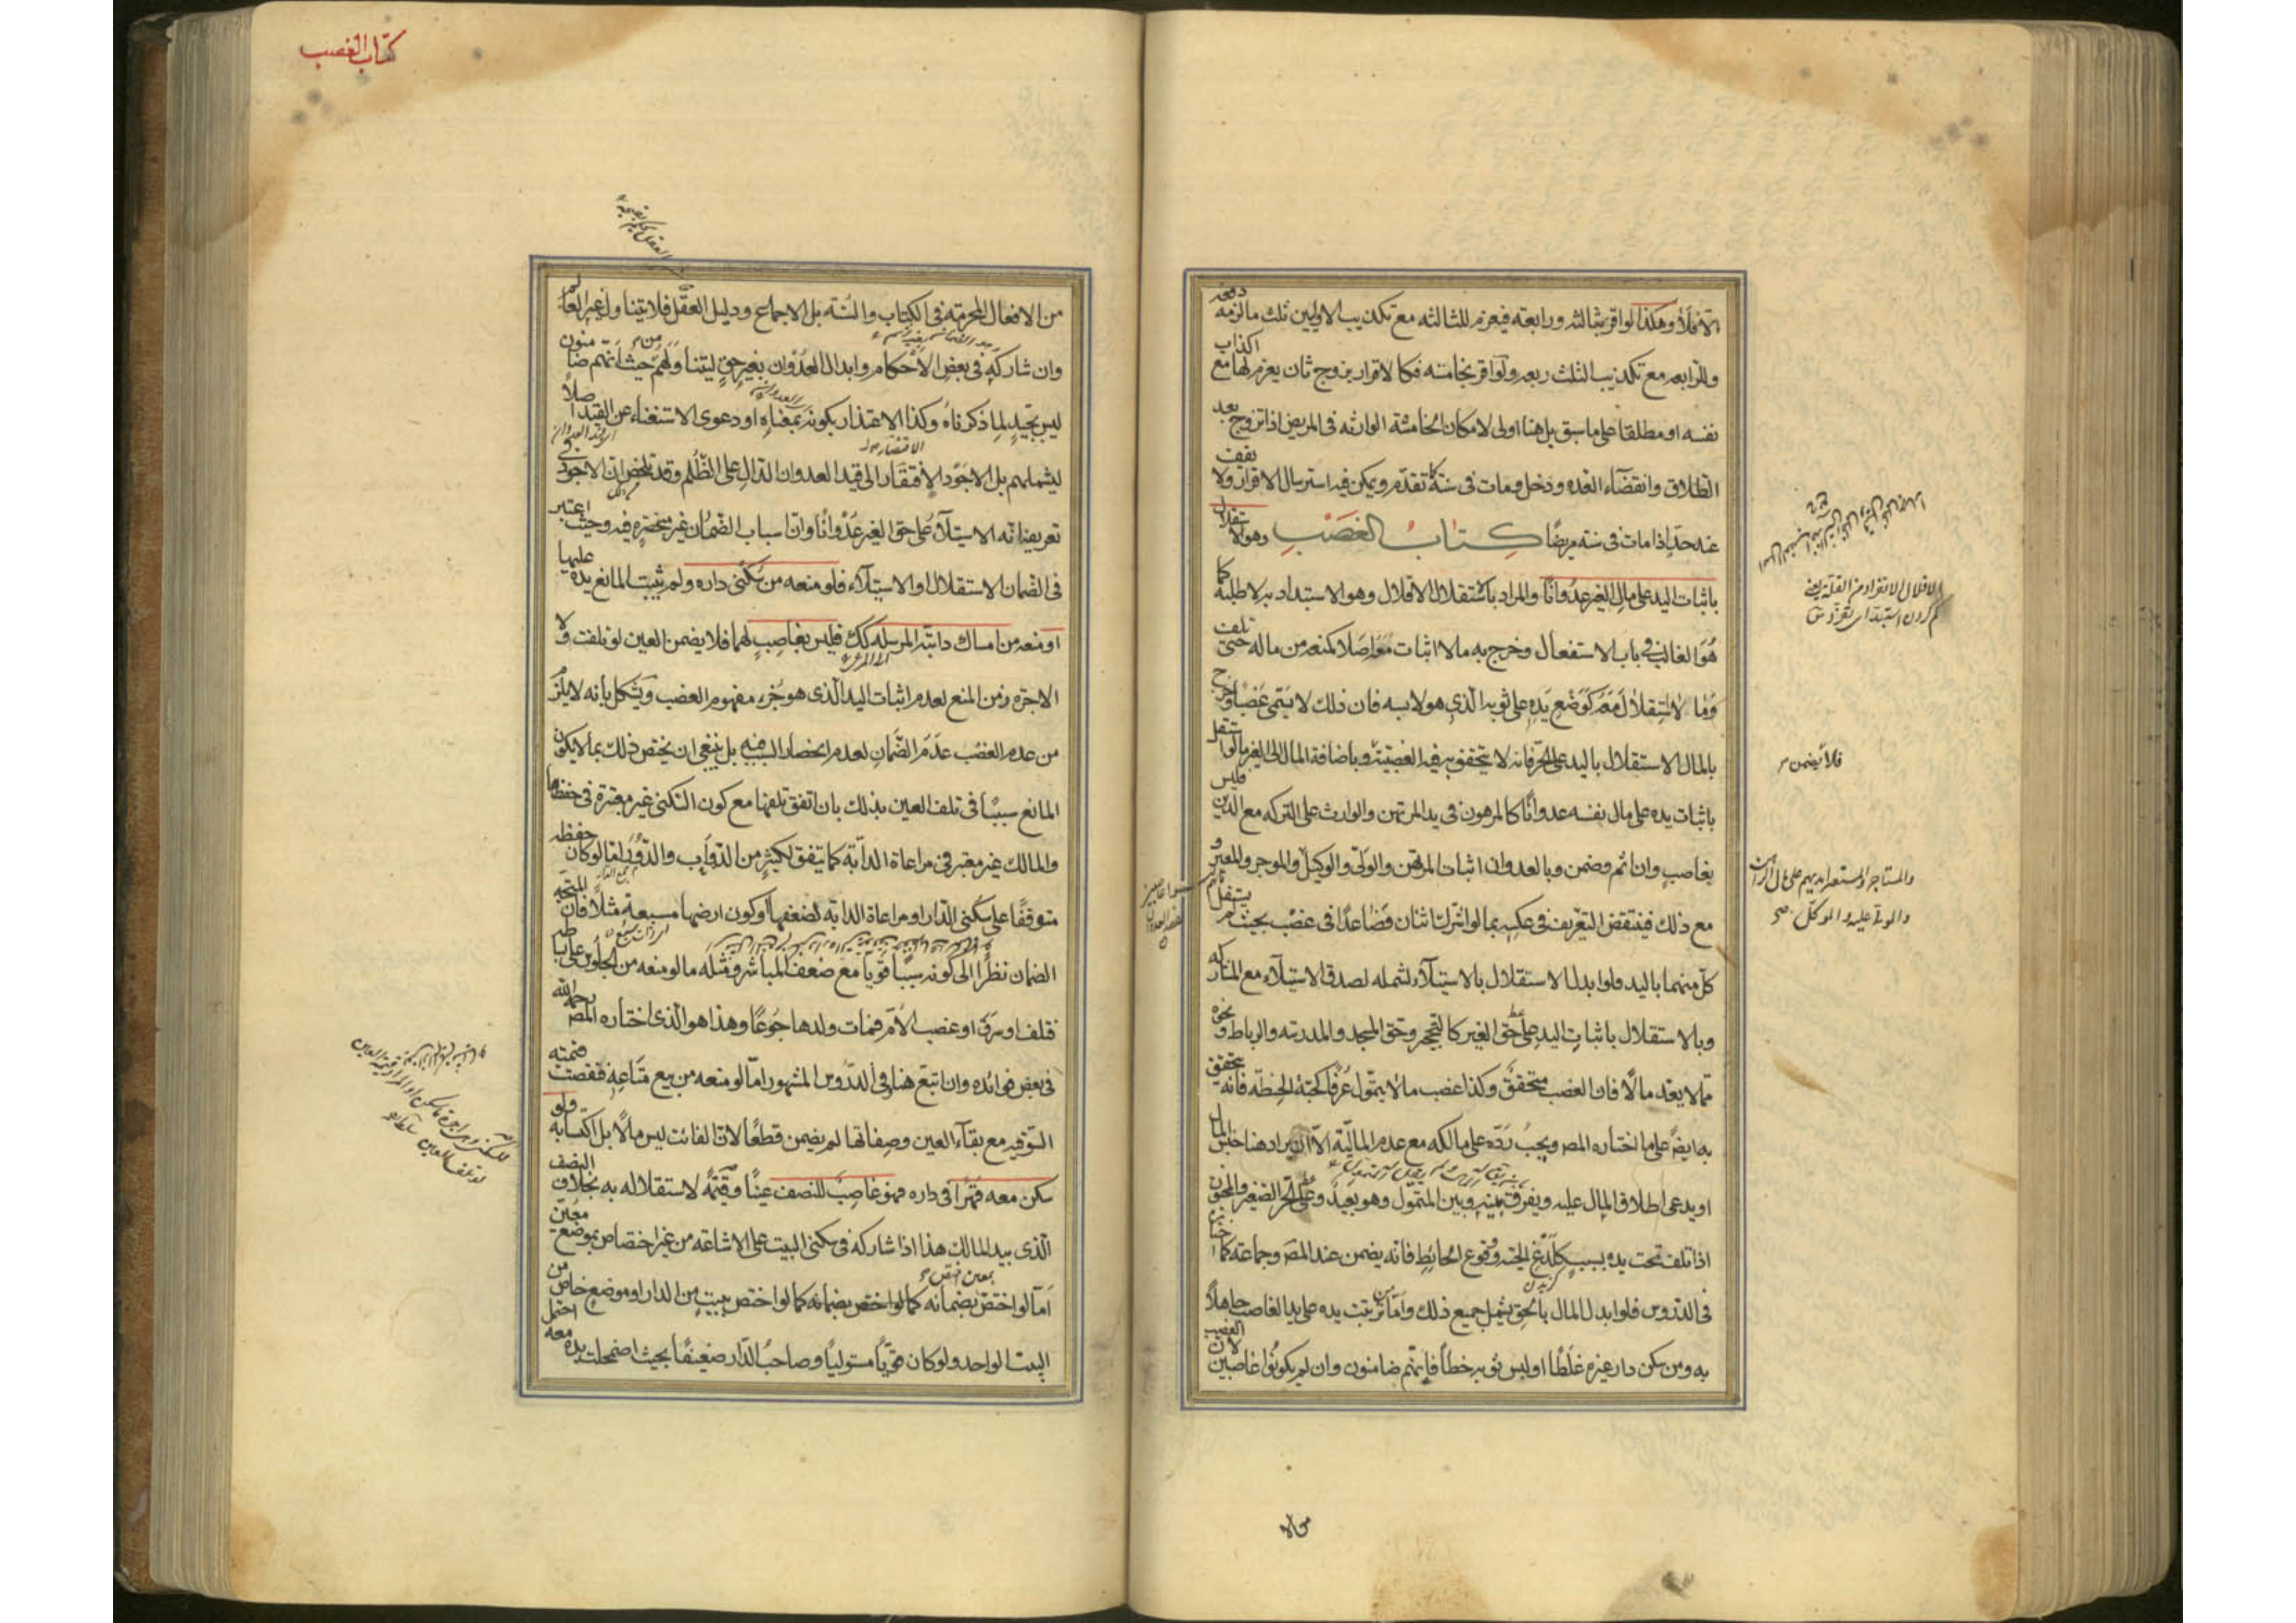 والا فلا وهكذا لو اقر بثالثه ورابعته فيغرم للثالثه مع تكذيب الاوليين ثلث ما لزمه دفعه
وللرابعه مع تكذيب الثلث ربعه ولو اقر بخامسه فكالاقرار بزوج ثان يغرم لها مع اكذاب
نفسه او مطلقا على ما سبق بل هنا اولى لامكان الخامسة الوارثه في المريض اذا تزوج بعد
الطلاق وانقضاء العده ودخل ومات في سنة كما تقدم ويمكن فيه استرسال الاقرار ولا يقف
عند حد اذا مات في سنته مريضا كتاب الغصب وهو الاستقلال
باثبات اليد على مال الغير عدوانا والمراد بالاستقلال الاقلال وهو الاستبداد به لا طلبه كما
هو الغالب في باب الاستفعال وخرج به ما لا اثبات معه اصلا كمنعه من ماله حتى تلف
وما لا استقلال معه كوضع يده على ثوبه الذي هو لابسه فان ذلك لا يسمى غصبا وخرج
بالمال الاستقلال باليد على الحر فانه لا يتحقق به فيه الغصبية وباضافة المال الى الغير ما لو استقل
باثبات يده على مال نفسه عدوانا كالمرهون في يد المرتهن والوارث على التركه مع الدين فليس
بغاصب وان اثم وضمن وبالعدوان اثبات المرتهن والولي والوكيل والموجر والمعير و
مع ذلك فينتقض التعريف في عكسه بما لو اشترك اثنان فصاعدا في غصب بحيث لم يستقل
كل منهما باليد فلو ابدل الاستقلال بالاستيلاء لشمله لصدق الاستيلاء مع المشاركه
وبالاستقلال باثبات اليد على حق الغير كالتحجر وحق المسجد والمدرسه والرباط ونحوه
مما لا يعد مالا فان الغصب متحقق وكذا غصب ما لا يتمول عرفا كحبة الحنطه فانه يتحقق
به ايضا على ما اختاره المص ويجب رده على مالكه مع عدم المالية الا ان يراد هنا جنس المال
او يدعى اطلاق المال عليه ويفرق بينه وبين المتمول وهو بعيد وعلى الحر الصغير والمجنون
اذا تلف تحت يده بسبب كلدغ الحية ووقوع الحائط فانه يضمن عند المص وجماعة كما اختاره
في الدروس فلو ابدل المال بالحق يشمل جميع ذلك واما من ترتبت يده على يد الغاصب جاهلا
به ومن سكن دار غيره غلطا او لبس ثوبه خطأ فانهم ضامنون وان لم يكونوا غاصبين لان الغصب
الاقلال الانفراد من القلة يعني
فلا يضمن
والمستاجر والمستعير ايديهم على مال الراهن
والمولى عليه والموكل صح
كتاب الغصب
من الافعال المحرمة في الكتاب والسنة بل الاجماع ودليل العقل فلا يتناول غير العالم
وان شاركه في بعض الاحكام وابدال العدوان بغير حق ليتناولهم من حيث انهم ضامنون
ليس بجيد لما ذكرناه وكذا الاعتذار بكونه بمعناه او دعوى الاستغناء عن القيد اصلا
ليشملهم بل الاجود الافتقار الى قيد العدوان الدال على الظلم وقد تلخص ان الاجود في
تعريفه انه الاستيلاء على حق الغير عدوانا وان اسباب الضمان غير منحصره فيه وحيث اعتبر
في الضمان الاستقلال او الاستيلاء فلو منعه من سكنى داره ولم يثبت المانع يده عليها
او منعه من امساك دابته المرسله كك فليس بغاصب لهما فلا يضمن العين لو تلفت ولا
الاجره زمن المنع لعدم اثبات اليد الذي هو جزء مفهوم الغصب ويشكل بانه لا يلزم
من عدم الغصب عدم الضمان لعدم انحصار السبب فيه بل ينبغي ان يختص ذلك بما لا يكون
المانع سببا في تلف العين بذلك بان اتفق تلفها مع كون السكنى غير معتبرة في حفظها
والمالك غير معتبر في مراعاة الدابة كما يتفق لكثير من الدواب والدور اما لو كان حفظه
متوقفا على سكنى الدار او مراعاة الدابه لضعفها او كون ارضها مسبعة مثلا فان المتجه
الضمان نظرا الى كونه سببا قويا مع ضعف المباشر ومثله ما لو منعه من الجلوس على بساطه
فتلف او سرق او غصب الام فمات ولدها جوعا وهذا هو الذي اختاره المص رحمه الله
في بعض فوائده وان اتبع هنا وفي الدروس المشهور اما لو منعه من بيع متاعه فنقصت قيمته
السوقيه مع بقاء العين وصفاتها لم يضمن قطعا لان الفائت ليس مالا بل اكتسابه ولو
سكن معه قهرا في داره فهو غاصب للنصف عينا وقيمة لاستقلاله به بخلاف النصف
الذي بيد المالك هذا اذا شاركه في سكنى البيت على الاشاعه من غير اختصاص بموضع معين
اما لو اختص بمعين اختص بضمانه كما لو اختص ببيت من الدار او موضع خاص من
البيت الواحد ولو كان قويا مستوليا وصاحب الدار ضعيفا بحيث اضمحلت يده معه احتمل